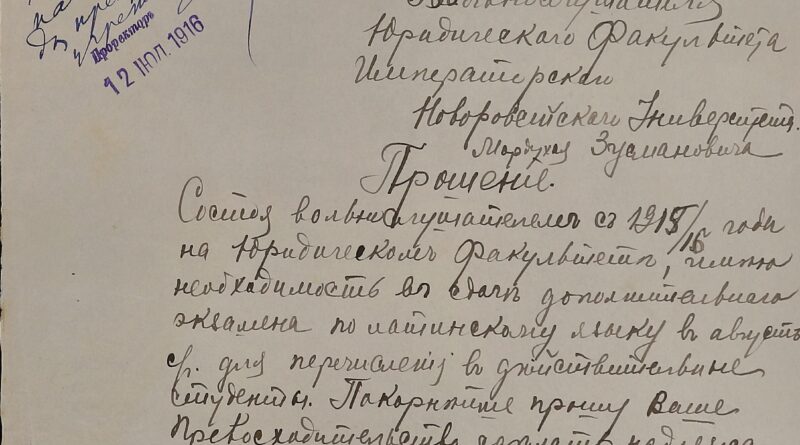 Проректоръ
12 ІЮЛ. 1916
Вольнослушателя
Юридическаго Факультета
Императорскаго
Новоровсійскаго Университета
Мордуха Зусмановича
Прошеніе.
Состоя вольнослушателемъ съ 1915/16 года
на Юридическомъ Факультетѣ, имѣю
необходимость въ сдачѣ дополнительнаго
экзамена по латинскому языку въ августѣ
с/г. для перечисленія въ дѣйствительные
студенты. Покорнѣйше прошу Ваше
Превосходительство